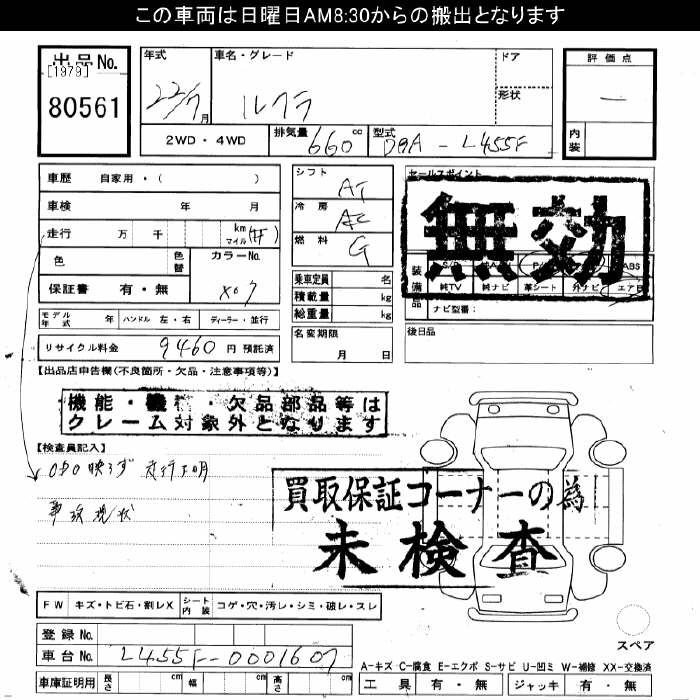 この車両は日曜日AM8:30からの搬出となります
出品No.
[1979]
80561
年式
22/7
月
車名・グレード
ルクラ
ドア
形状
評価点
ー
内装
2WD・4WD
排気量
660
cc
型式
DBA - L455F
車歴 自家用・( )
車検 年 月
走行 万 千 km マイル
色 色替 カラーNo.
X07
保証書 有・無
モデル年式 年 ハンドル 左・右 ディーラー・並行
リサイクル料金 9460 円 預託済
シフト
AT
冷房
AC
燃料
G
乗車定員 名
積載量 kg
総重量 kg
名変期限
月 日
セールスポイント
無効
装備品
ABS
純TV 純ナビ 革シート 外ナビ エアB
ナビ型番:
後日品
【出品店申告欄(不良箇所・欠品・注意事項等)】
機能・機 ・欠品部品等は
クレーム対象外となります
【検査員記入】
ODO映らず 走行不明
事故現状
買取保証コーナーの為
未検査
FW キズ・トビ石・割レX シート内装 コゲ・穴・汚レ・シミ・破レ・スレ
登録No.
車台No. L455F-0001607
車庫証明用 長さ cm 幅 cm 高さ cm
スペア
A-キズ C-腐食 E-エクボ S-サビ U-凹ミ W-補修 XX-交換済
工具 有・無 ジャッキ 有・無